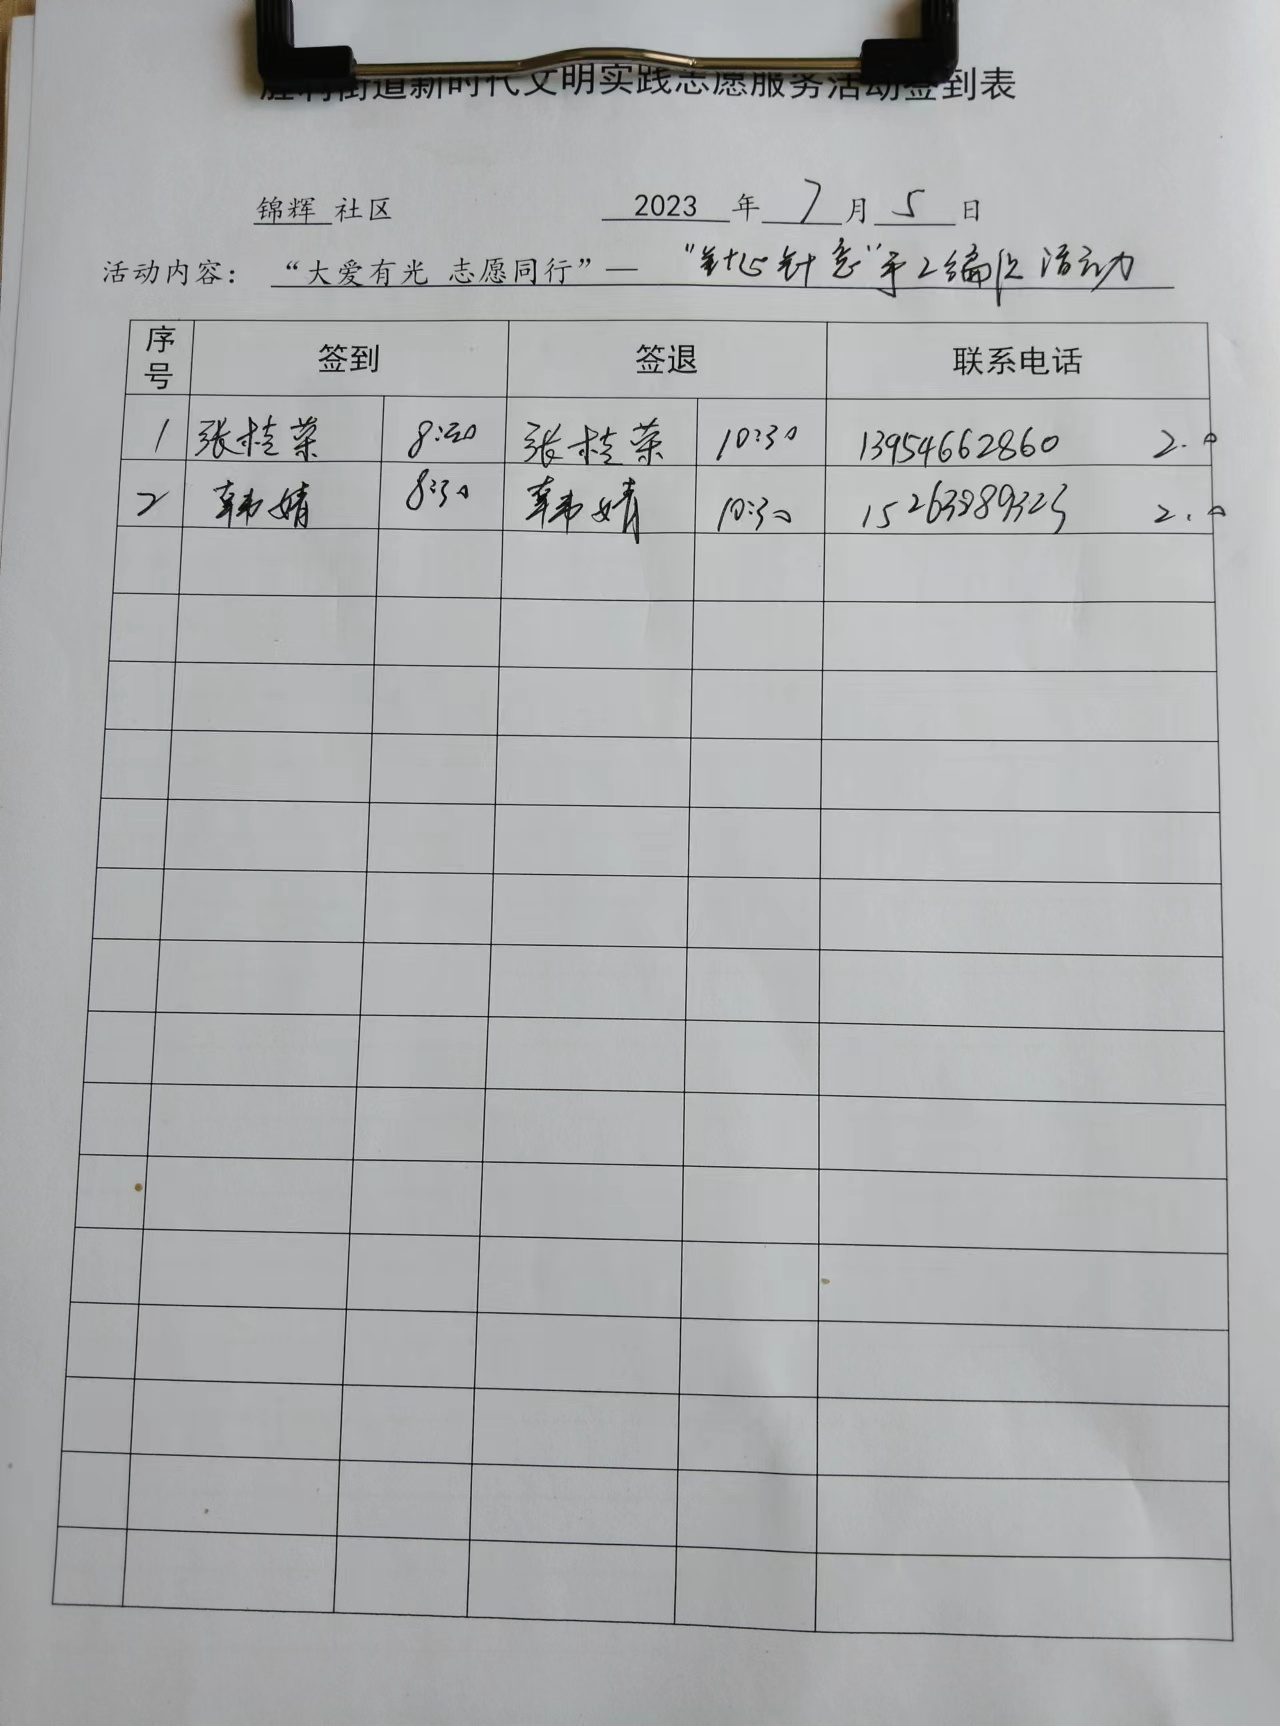 胜利街道新时代文明实践志愿服务活动签到表
锦辉 社区 2023 年 7 月 5 日
活动内容： “大爱有光 志愿同行”— “针心针意”手工编织活动
序号 签到 签退 联系电话
1 张桂荣 8:30 张桂荣 10:30 13954662860 2.0
2 韩婧 8:30 韩婧 10:30 2.0